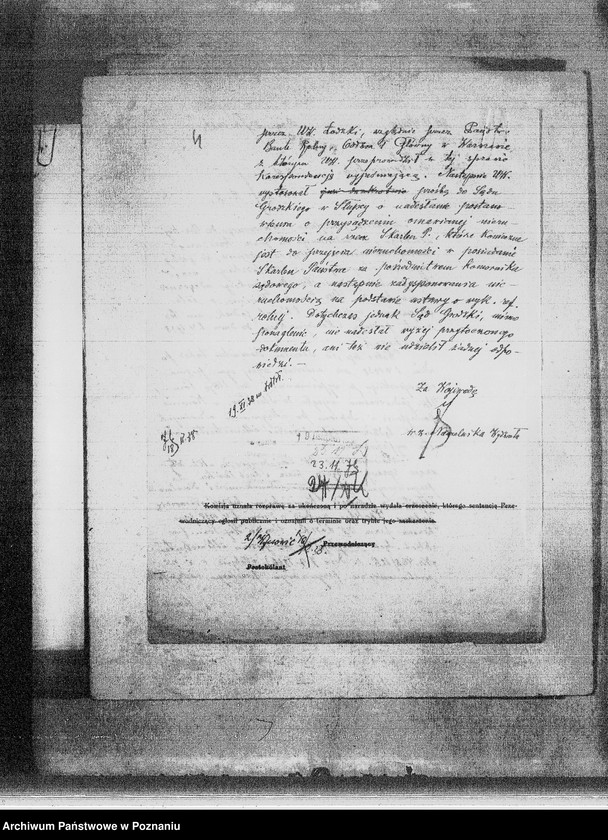 4
przez UW. Łódzki, względnie przez Państw.
Bank Rolny, Oddział Główny w Warszawie,
z którym UW. przeprowadził w tej sprawie
korespondencję wyjaśniającą. Następnie UW.
wystosował prośbę do Sądu
Grodzkiego w Słupcy o nadesłanie postano-
wienia o przysądzeniu omawianej nieru-
chomości na rzecz Skarbu P., które konieczne
jest do przejęcia nieruchomości w posiadanie
Skarbu Państwa za pośrednictwem komornika
sądowego, a następnie zadysponowania nie-
ruchomością na podstawie ustawy o wyk. ref.
rolnej. Dotychczas jednak Sąd Grodzki, mimo
ponagleń, nie nadesłał wyżej przytoczonego
dokumentu, ani też nie udzielił żadnej odpo-
wiedzi.—
Za Wojewodę
Naczelnika Wydziału
23.11.
Komisja uznała rozprawę za ukończoną i po naradzie wydała orzeczenie, którego sentencję Prze-
wodniczący ogłosił publicznie i uzasadnił o terminie oraz trybie jego zaskarżenia.
Przewodniczący
Protokólant
Archiwum Państwowe w Poznaniu